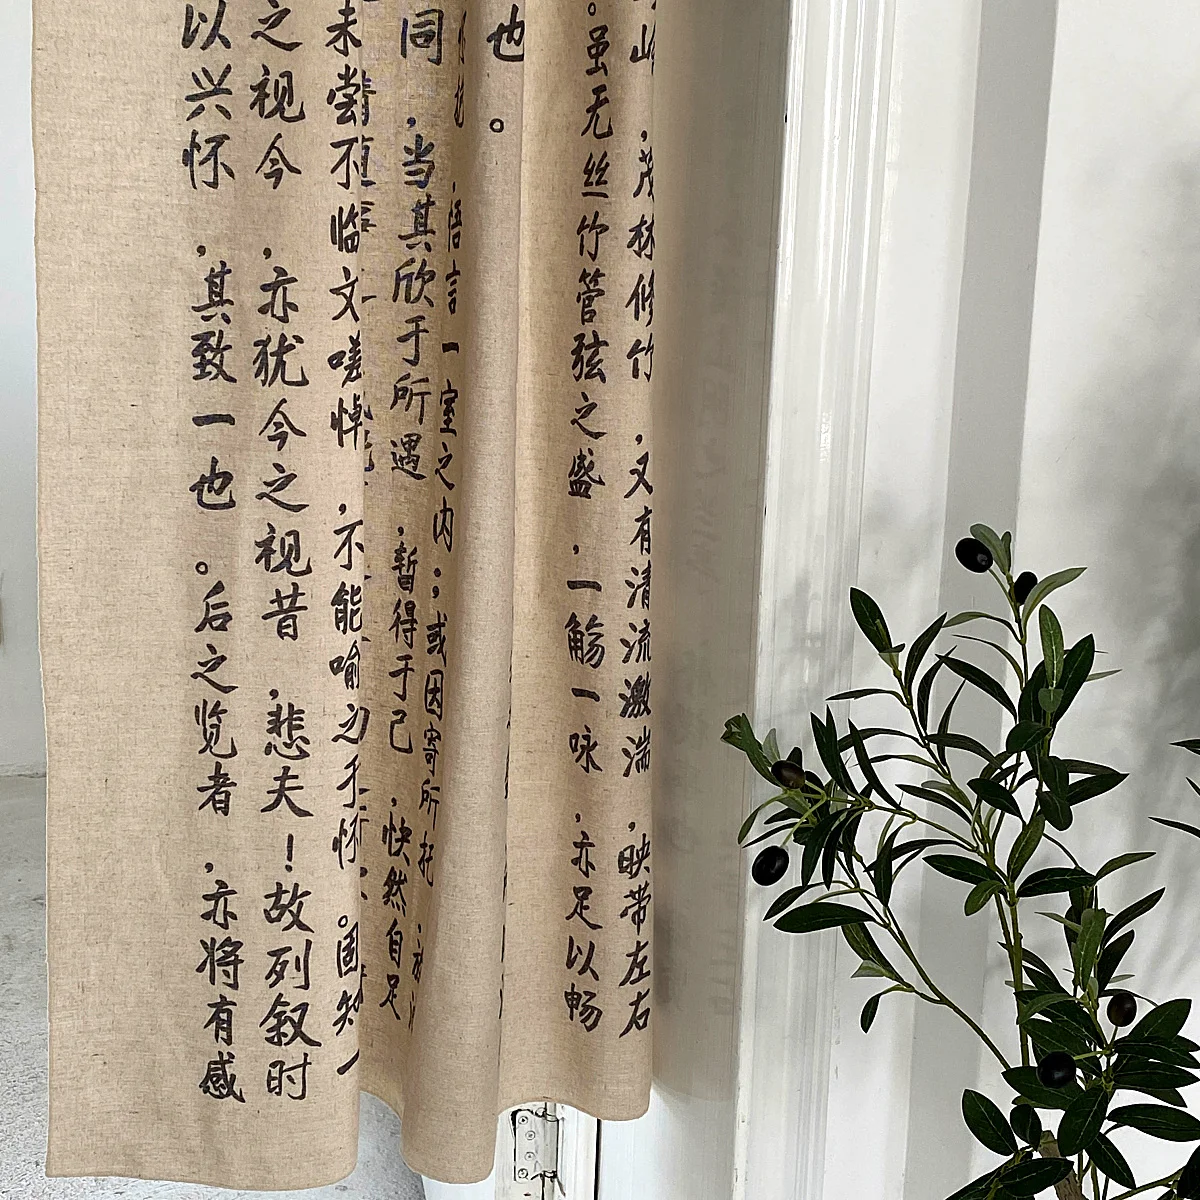 岭，茂林修竹，又有清流激湍，映带左右
。虽无丝竹管弦之盛，一觞一咏，亦足以畅
也。
，悟言一室之内；或因寄所托，
同，当其欣于所遇，暂得于己，快然自足
未尝不临文嗟悼，不能喻之于怀。固知一
之视今，亦犹今之视昔，悲夫！故列叙时
以兴怀，其致一也。后之览者，亦将有感